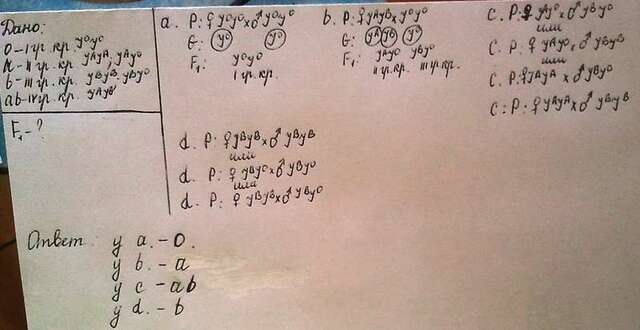 Дано:
O-I гр. кр. yOyO
A-II гр. кр. yAyA, yAyO
b-III гр. кр. yByB, yByO
ab-IV гр. кр. yAyB
F₁-?
a. P: ♀ yOyO × ♂ yOyO
G: yO yO
F₁: yOyO
I гр. кр.
b. P: ♀ yAyB × yOyO
G: yA yB yO
F₁: yAyO yByO
II гр. кр. III гр. кр.
c. P: ♀ yAyO × ♂ yByO
или
c. P: ♀ yAyO × ♂ yByB
или
c. P: ♀ yAyA × ♂ yByO
c: P: ♀ yAyA × ♂ yByB
d. P: ♀ yByB × ♂ yByB
или
d. P: ♀ yByO × ♂ yByO
или
d. P: ♀ yByB × ♂ yByO
Ответ: у a. - O.
у b. - a
у c - ab
у d. - b